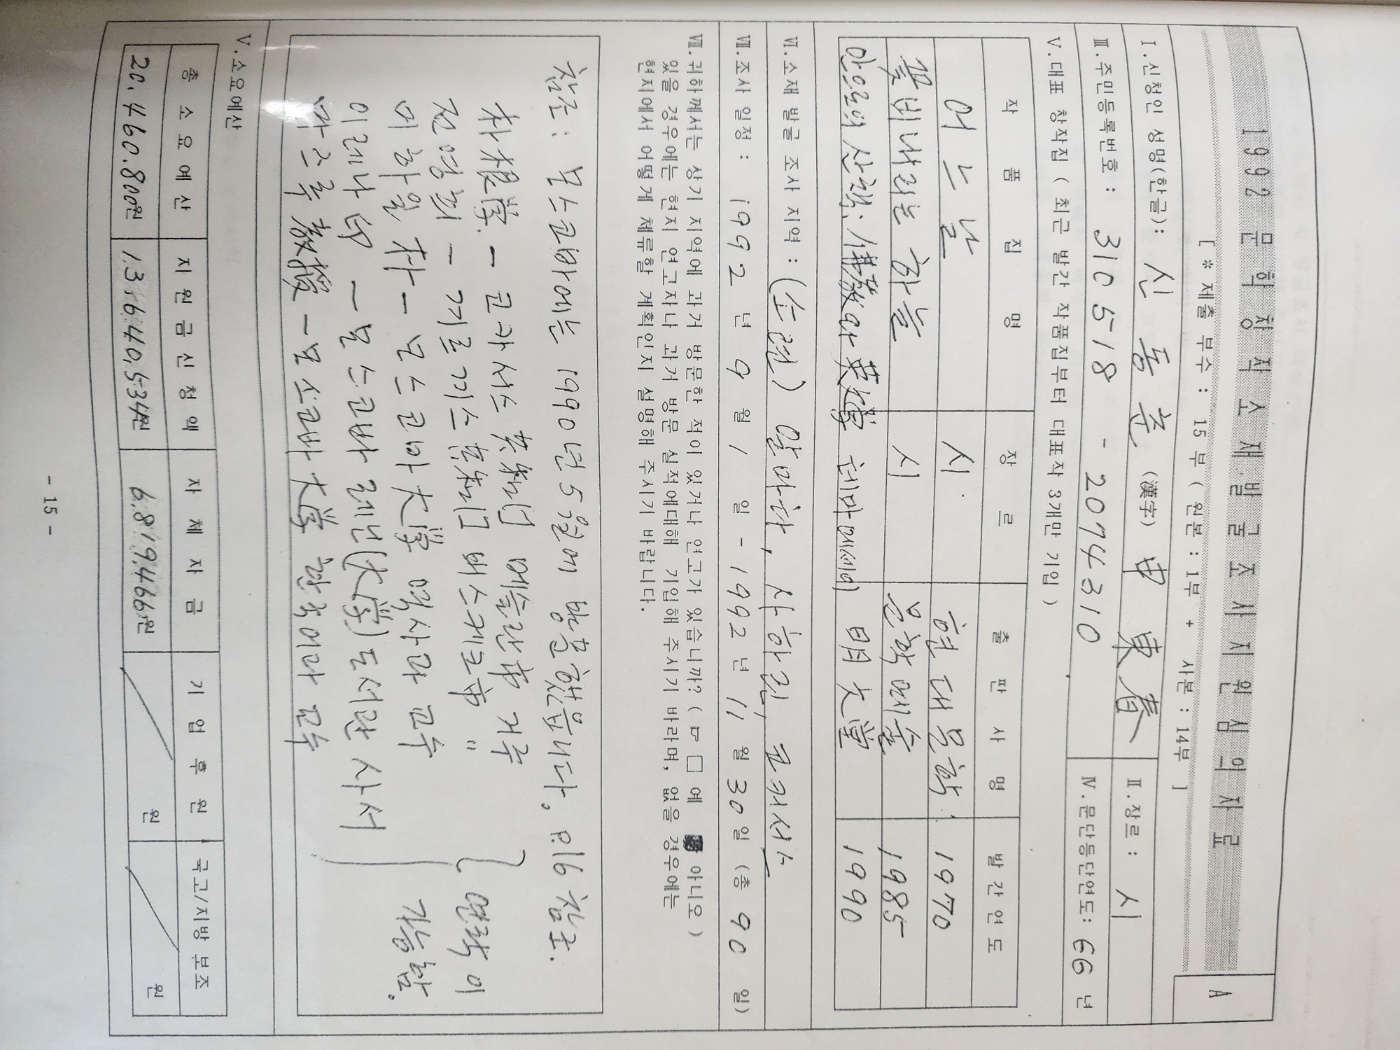 1992 문학창작 소재발굴조사지원심의자료
A
[ * 제출 부수 : 15부 ( 원본 : 1부 + 사본 : 14부 ]
Ⅰ.신청인 성명(한글): 신동춘 (漢字) 申東春
Ⅱ.장르: 시
Ⅲ.주민등록번호: 310518 - 2074310
Ⅳ.문단등단연도: 66 년
Ⅴ.대표 창작집 ( 최근 발간 작품집부터 대표작 3개만 기입 )
작 품 집 명 장 르 출 판 사 명 발 간 연 도
어느날 시 현대문학 1970
꽃비내리는 하늘 시 문학예술 1985
산책: 佛教와 英文學 테마에세이 明文堂 1990
Ⅵ.소재 발굴 조사 지역: (소련) 알마타, 사하린, 코카서스
Ⅶ.조사 일정: 1992 년 9 월 1 일 - 1992 년 11 월 30 일 (총 90 일)
Ⅶ.귀하께서는 상기 지역에 과거 방문한 적이 있거나 연고가 있습니까? ( 예 □ 아니오 )
있을 경우에는 현지 연고자나 과거 방문 실적에대해 기입해 주시기 바라며, 없을 경우에는
현지에서 어떻게 체류할 계획인지 설명해 주시기 바랍니다.
참조: 모스크바에는 1990년 5월에 방문했읍니다. P.16 참조.
- 코카서스 거주
전영희 - 키르기스
미하일 朴 - 모스크바 大學 역사과 교수
이레나 - 모스크바 (大學) 도서관 사서
마주르 教授 - 모스크바 大學 한국어과 교수
연락이
가능함.
Ⅴ.소요예산
총 소 요 예 산 지 원 금 신 청 액 자 체 자 금 기 업 후 원 국고/지방 보조
20,460,800원 13,640,534원 6,819,466원 원 원
- 15 -